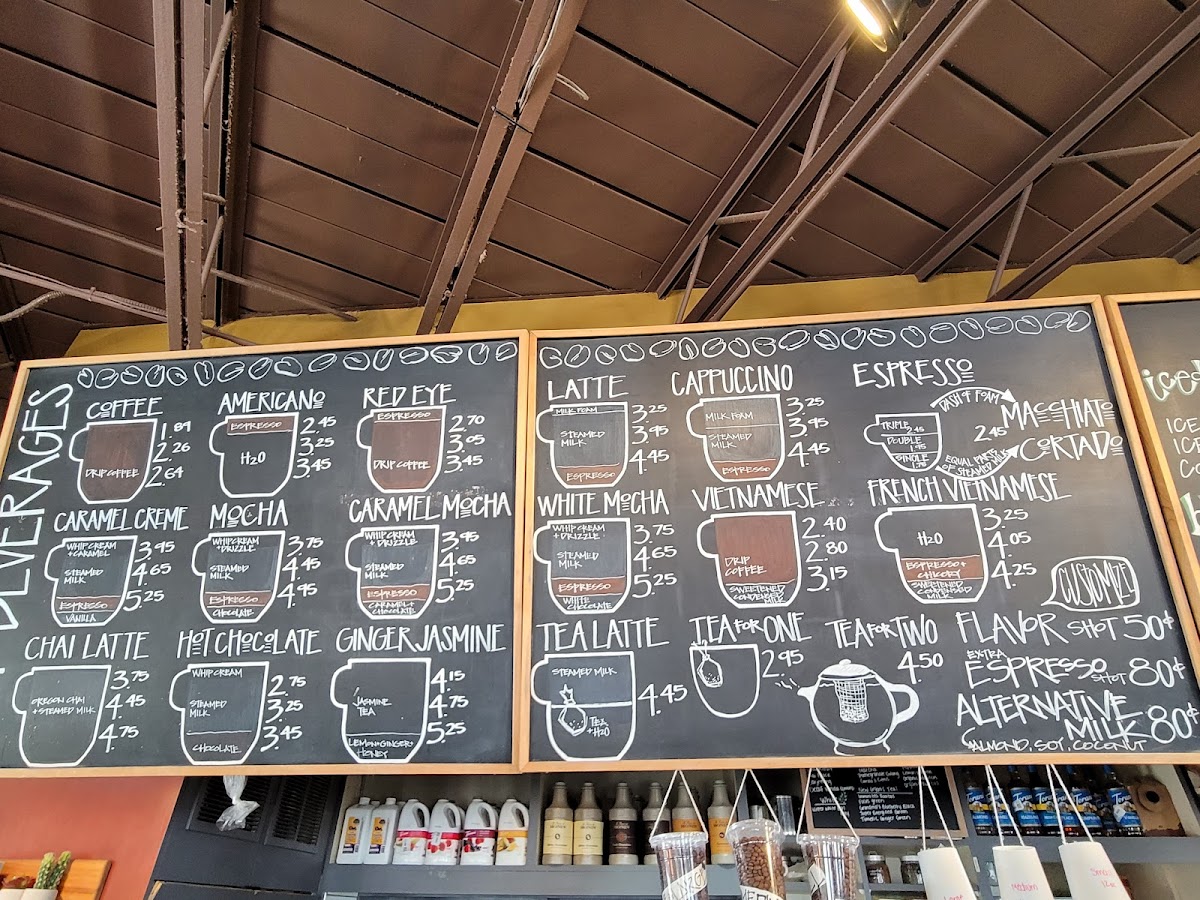 BEVERAGES
COFFEE
DRIP COFFEE
1.89
2.26
2.64
AMERICANO
ESPRESSO
H2O
2.45
3.25
3.45
RED EYE
ESPRESSO
DRIP COFFEE
2.70
3.05
3.45
CARAMEL CREME
WHIP CREAM
+ CARAMEL
STEAMED
MILK
ESPRESSO
VANILLA
3.95
4.65
5.25
MOCHA
WHIP CREAM
+ DRIZZLE
STEAMED
MILK
ESPRESSO
CHOCOLATE
3.75
4.45
4.95
CARAMEL MOCHA
WHIP CREAM
+ DRIZZLE
STEAMED
MILK
ESPRESSO
CARAMEL +
CHOCOLATE
3.95
4.65
5.25
CHAI LATTE
OREGON CHAI
+ STEAMED MILK
3.75
4.45
4.75
HOT CHOCOLATE
WHIP CREAM
STEAMED
MILK
CHOCOLATE
2.75
3.25
3.45
GINGER JASMINE
JASMINE
TEA
LEMON + GINGER +
HONEY
4.15
4.75
5.25
LATTE
MILK FOAM
STEAMED
MILK
ESPRESSO
3.25
3.95
4.45
CAPPUCCINO
MILK FOAM
STEAMED
MILK
ESPRESSO
3.25
3.95
4.45
ESPRESSO
TRIPLE 2.45
DOUBLE
1.95
SINGLE
DASH OF FOAM
2.45
MACCHIATO
CORTADO
EQUAL PARTS
OF STEAMED MILK
WHITE MOCHA
WHIP CREAM
+ DRIZZLE
STEAMED
MILK
ESPRESSO
WHITE
CHOCOLATE
3.75
4.65
5.25
VIETNAMESE
DRIP
COFFEE
SWEETENED
CONDENSED
MILK
2.40
2.80
3.15
FRENCH VIETNAMESE
H2O
ESPRESSO +
CHICORY
SWEETENED
CONDENSED
MILK
3.25
4.05
4.25
TEA LATTE
STEAMED MILK
TEA
+ H2O
4.45
TEA FOR ONE
2.95
TEA FOR TWO
4.50
CUSTOMIZE
FLAVOR SHOT 50¢
EXTRA
ESPRESSO SHOT 80¢
ALTERNATIVE
MILK 80¢
ALMOND, SOY, COCONUT
Torani
Medium